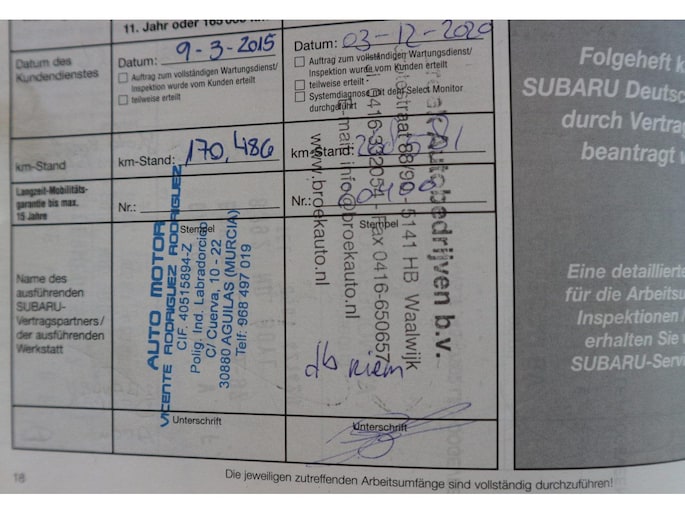 11. Jahr oder 165 000 km
Datum des
Kundendienstes
Datum: 9-3-2015
Auftrag zum vollständigen Wartungsdienst/
Inspektion wurde vom Kunden erteilt
teilweise erteilt
Datum: 03-12-2020
Auftrag zum vollständigen Wartungsdienst/
Inspektion wurde vom Kunden erteilt
teilweise erteilt
Systemdiagnose mit dem Select Monitor
durchgeführt
km-Stand
km-Stand: 170,486
km-Stand:
Langzeit-Mobilitäts-
garantie bis max.
15 Jahre
Nr.:
Nr.:
Stempel
Stempel
Name des
ausführenden
SUBARU-
Vertragspartners/
der ausführenden
Werkstatt
AUTO MOTOR
VICENTE RODRIGUEZ RODRIGUEZ
CIF. 40515894-Z
Polig. Ind. Labradorcico
C/ Cuerva, 10 - 22
30880 AGUILAS (MURCIA)
Telf: 968 497 019
Autobedrijven b.v.
88/90 - 5141 HB Waalwijk
0416-332054 - Fax 0416-650657
e-mail: info@broekauto.nl
www.broekauto.nl
db riem
Unterschrift
Unterschrift
18
Die jeweiligen zutreffenden Arbeitsumfänge sind vollständig durchzuführen!
Folgeheft
SUBARU Deutsc
durch Vertrag
beantragt
Eine detaillierte
für die Arbeitsu
Inspektionen
erhalten Sie
SUBARU-Servi